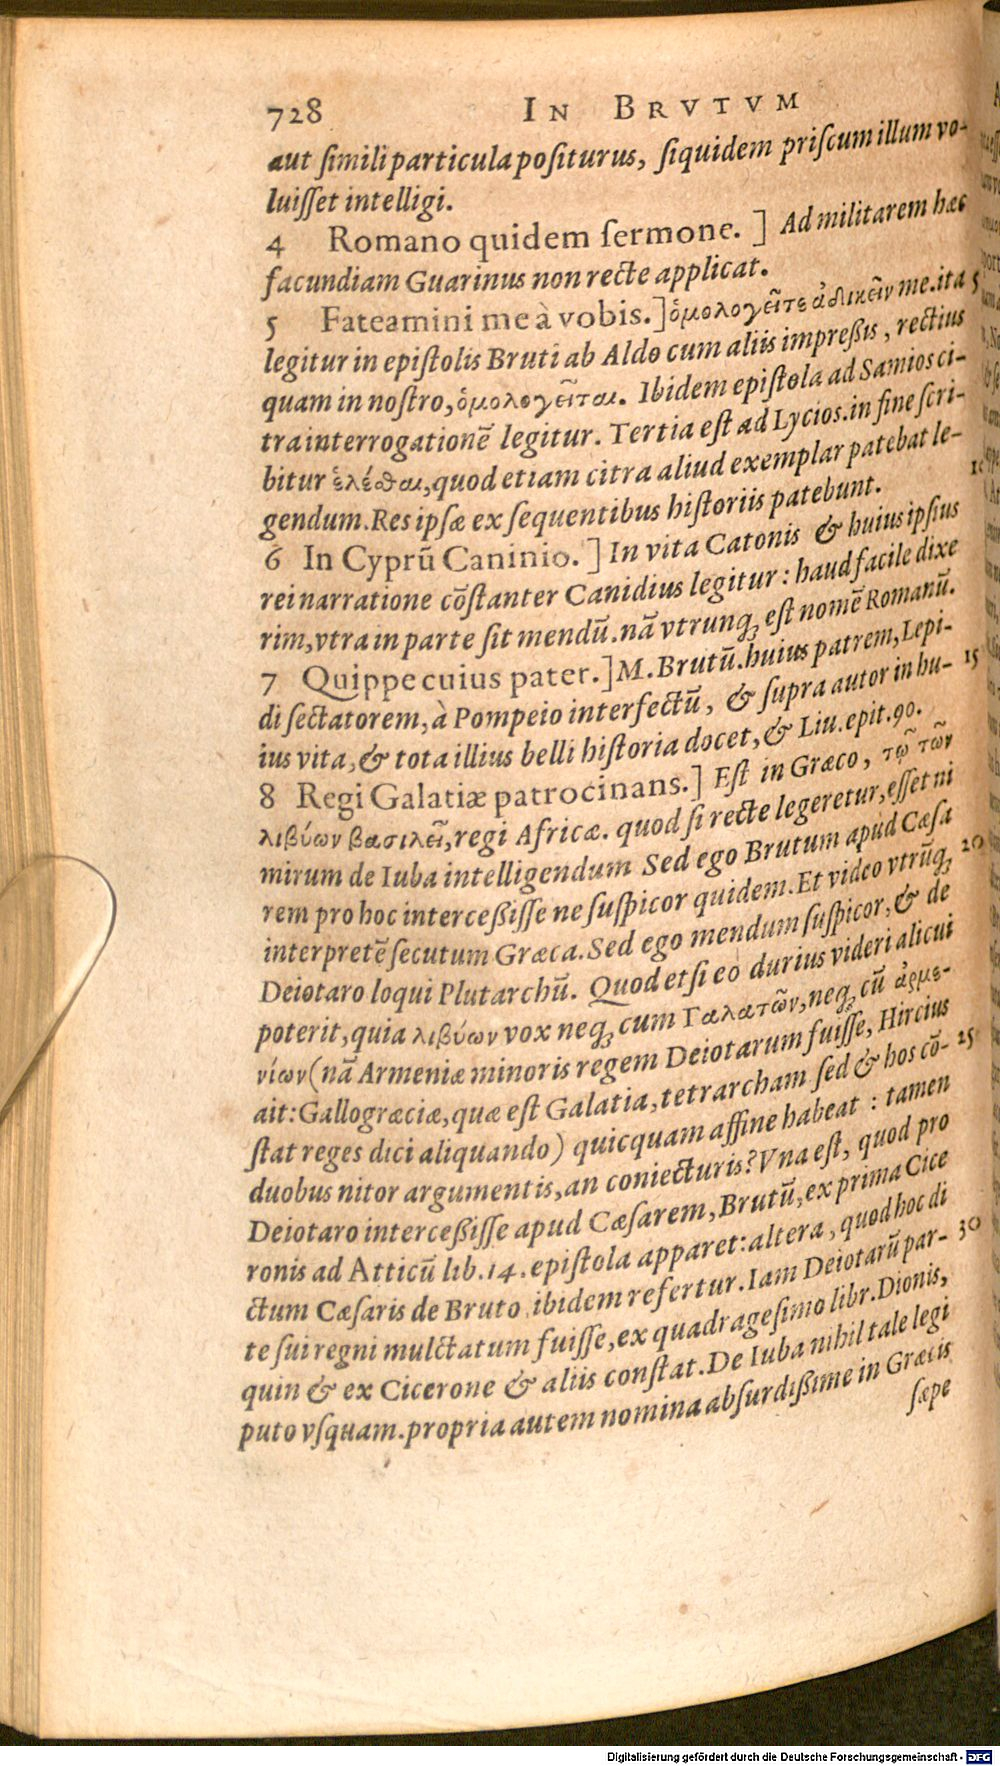 728 IN BRVTVM
aut ſimili particula poſiturus, ſiquidem priſcum illum vo-
luiſſet intelligi.
4 Romano quidem ſermone. ] Ad militarem hæc
facundiam Guarinus non recte applicat.
5 Fateamini me à vobis. ] ὁμολογεῖτε ἀδικεῖν me. ita 5
legitur in epiſtolis Bruti ab Aldo cum aliis impreßis, rectius
quam in noſtro, ὁμολογεῖται. Ibidem epiſtola ad Samios ci-
tra interrogationē legitur. Tertia eſt ad Lycios. in fine ſcri-
bitur ἑλέσθαι, quod etiam citra aliud exemplar patebat le-
gendum. Res ipſæ ex ſequentibus hiſtoriis patebunt. 10
6 In Cyprū Caninio. ] In vita Catonis & huius ipſius
rei narratione cōſtanter Canidius legitur: haud facile dixe
rim, vtra in parte ſit mendū. nā vtrunqȝ eſt nomē Romanū.
7 Quippe cuius pater. ] M. Brutū. huius patrem, Lepi-
di ſectatorem, à Pompeio interfectū, & ſupra autor in hu- 15
ius vita, & tota illius belli hiſtoria docet, & Liu. epit. 90.
8 Regi Galatiæ patrocinans. ] Eſt in Græco, τῷ τῶν
λιβύων βασιλεῖ, regi Africæ. quod ſi recte legeretur, eſſet ni
mirum de Iuba intelligendum Sed ego Brutum apud Cæſa
rem pro hoc interceßiſſe ne ſuſpicor quidem. Et video vtrūqȝ 20
interpretē ſecutum Græca. Sed ego mendum ſuſpicor, & de
Deiotaro loqui Plutarchū. Quod etſi eo durius videri alicui
poterit, quia λιβύων vox neqȝ cum Γαλατῶν, neqȝ cū ἀρμε-
νίων (nā Armeniæ minoris regem Deiotarum fuiſſe, Hircius
ait: Gallogræciæ, quæ eſt Galatia, tetrarcham ſed & hos cō- 25
ſtat reges dici aliquando) quicquam affine habeat : tamen
duobus nitor argumentis, an coniecturis? Vna eſt, quod pro
Deiotaro interceßiſſe apud Cæſarem, Brutū, ex prima Cice
ronis ad Atticū lib. 14. epiſtola apparet: altera, quod hoc di
ctum Cæſaris de Bruto ibidem refertur. Iam Deiotarū par- 30
te ſui regni mulctatum fuiſſe, ex quadrageſimo libr. Dionis,
quin & ex Cicerone & aliis conſtat. De Iuba nihil tale legi
puto vſquam. propria autem nomina abſurdißime in Græcis
ſæpe
Digitalisierung gefördert durch die Deutsche Forschungsgemeinschaft - DFG